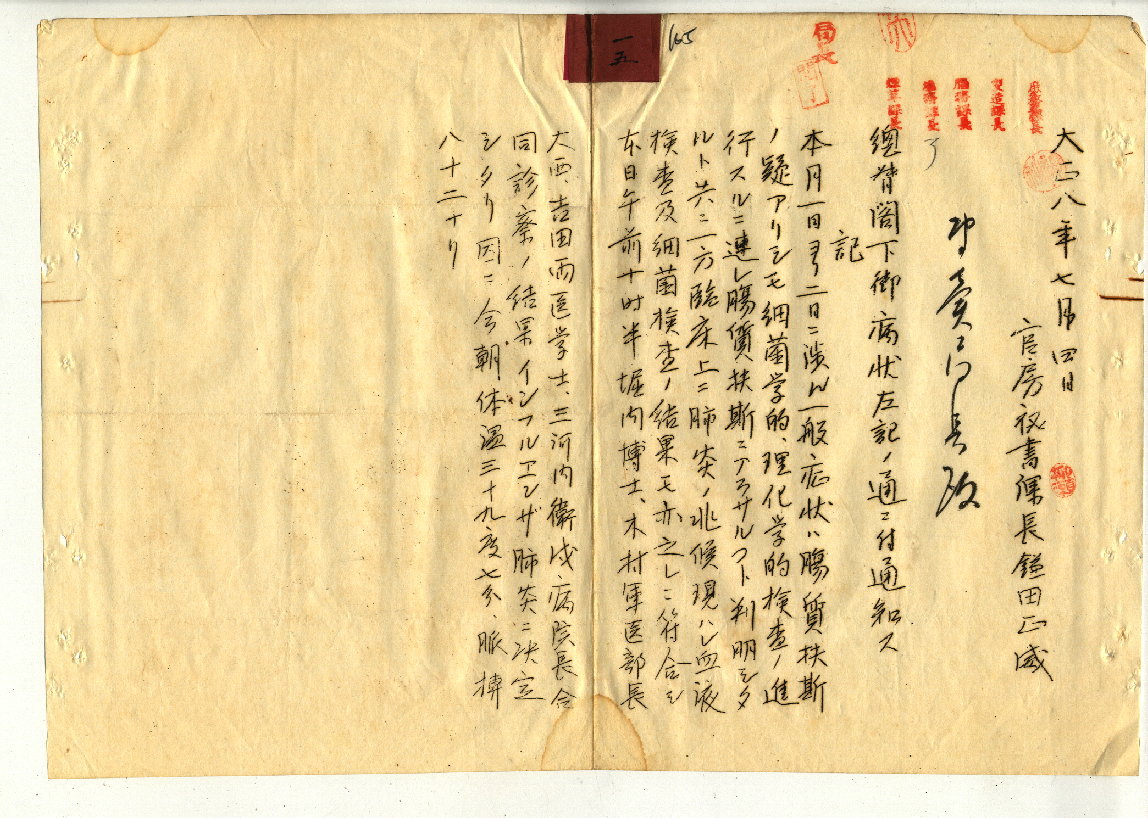 大正八年七月四日
官房秘書課長鎌田正威
専売局長殿
總督閣下御病状左記ノ通ニ付通知ス
記
本月一日ヨリ二日ニ渉ル一般症状ハ腸質扶斯
ノ疑アリシモ細菌学的、理化学的検査ノ進
行スルニ連レ腸質扶斯ニアラサルコト判明シタ
ルト共ニ一方臨床上ニ肺炎ノ兆候現ハレ血液
検査及細菌検査ノ結果モ亦之レニ符合シ
本日午前十時半堀内博士、木村軍医部長
大西、吉田両医学士、三河内衛戍病院長合
同診察ノ結果インフルエンザ肺炎ニ決定
シタリ因ニ今朝体温三十九度七分、脈搏
八十二ナリ
局長
製造課長
一五
165